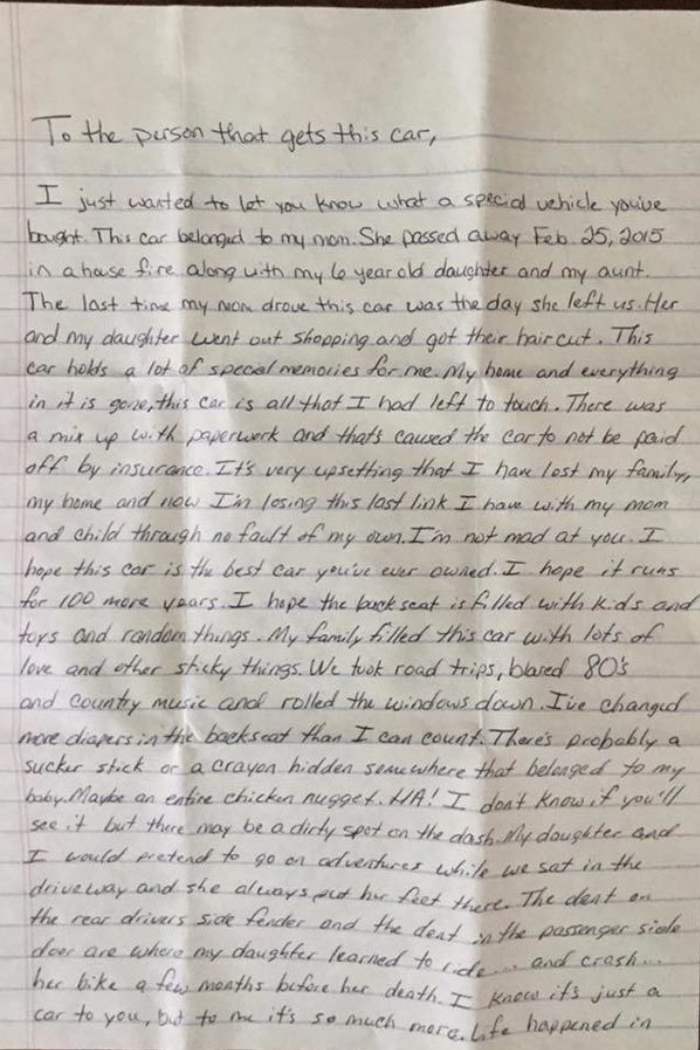 To the person that gets this car,
I just wanted to let you know what a special vehicle you've
bought. This car belonged to my mom. She passed away Feb. 25, 2015
in a house fire along with my 6 year old daughter and my aunt.
The last time my mom drove this car was the day she left us. Her
and my daughter went out shopping and got their hair cut. This
car holds a lot of special memories for me. My home and everything
in it is gone, this car is all that I had left to touch. There was
a mix up with paperwork and thats caused the car to not be paid
off by insurance. It's very upsetting that I have lost my family,
my home and now I'm losing this last link I have with my mom
and child through no fault of my own. I'm not mad at you. I
hope this car is the best car you've ever owned. I hope it runs
for 100 more years. I hope the back seat is filled with kids and
toys and random things. My family filled this car with lots of
love and other sticky things. We took road trips, blared 80's
and country music and rolled the windows down. I've changed
more diapers in the backseat than I can count. There's probably a
sucker stick or a crayon hidden somewhere that belonged to my
baby. Maybe an entire chicken nugget. HA! I don't know if you'll
see it but there may be a dirty spot on the dash. My daughter and
I would pretend to go on adventures while we sat in the
driveway and she always put her feet there. The dent on
the rear drivers side fender and the dent in the passenger side
door are where my daughter learned to ride... and crash...
her bike a few months before her death. I know it's just a
car to you, but to me it's so much more. Life happened in